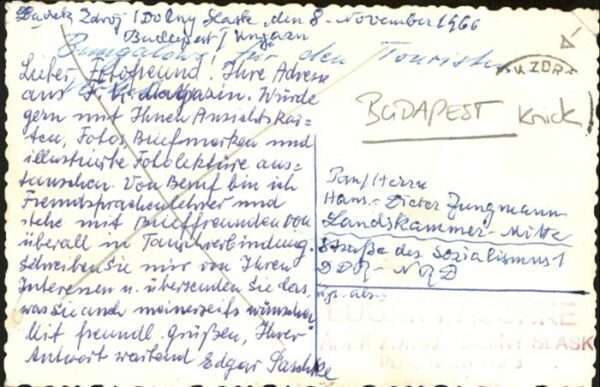 Zdrój / Dolny Śląsk, den 8. November 1966
Budapest / Ungarn
Bungalows für den Touristen
Lieber Fotofreund! Ihre Adresse
aus Magazin. Würde
gern mit Ihnen Ansichtskar=
ten, Fotos, Briefmarken und
illustrierte Fotolektüre aus=
tauschen. Von Beruf bin ich
Fremdsprachenlehrer und
stehe mit Brieffreunden von
überall in Tauschverbindung.
Schreiben Sie mir von Ihren
Interessen u. übersenden Sie das,
was Sie auch meinerseits wünschen.
Mit freundl. Grüßen, Ihrer
Antwort wartend Edgar
ZDRÓJ
BUDAPEST Knick!
Herrn
Hans-Dieter Jungmann
Landskammer-Mitte
Straße des Sozialismus 1
DDR -